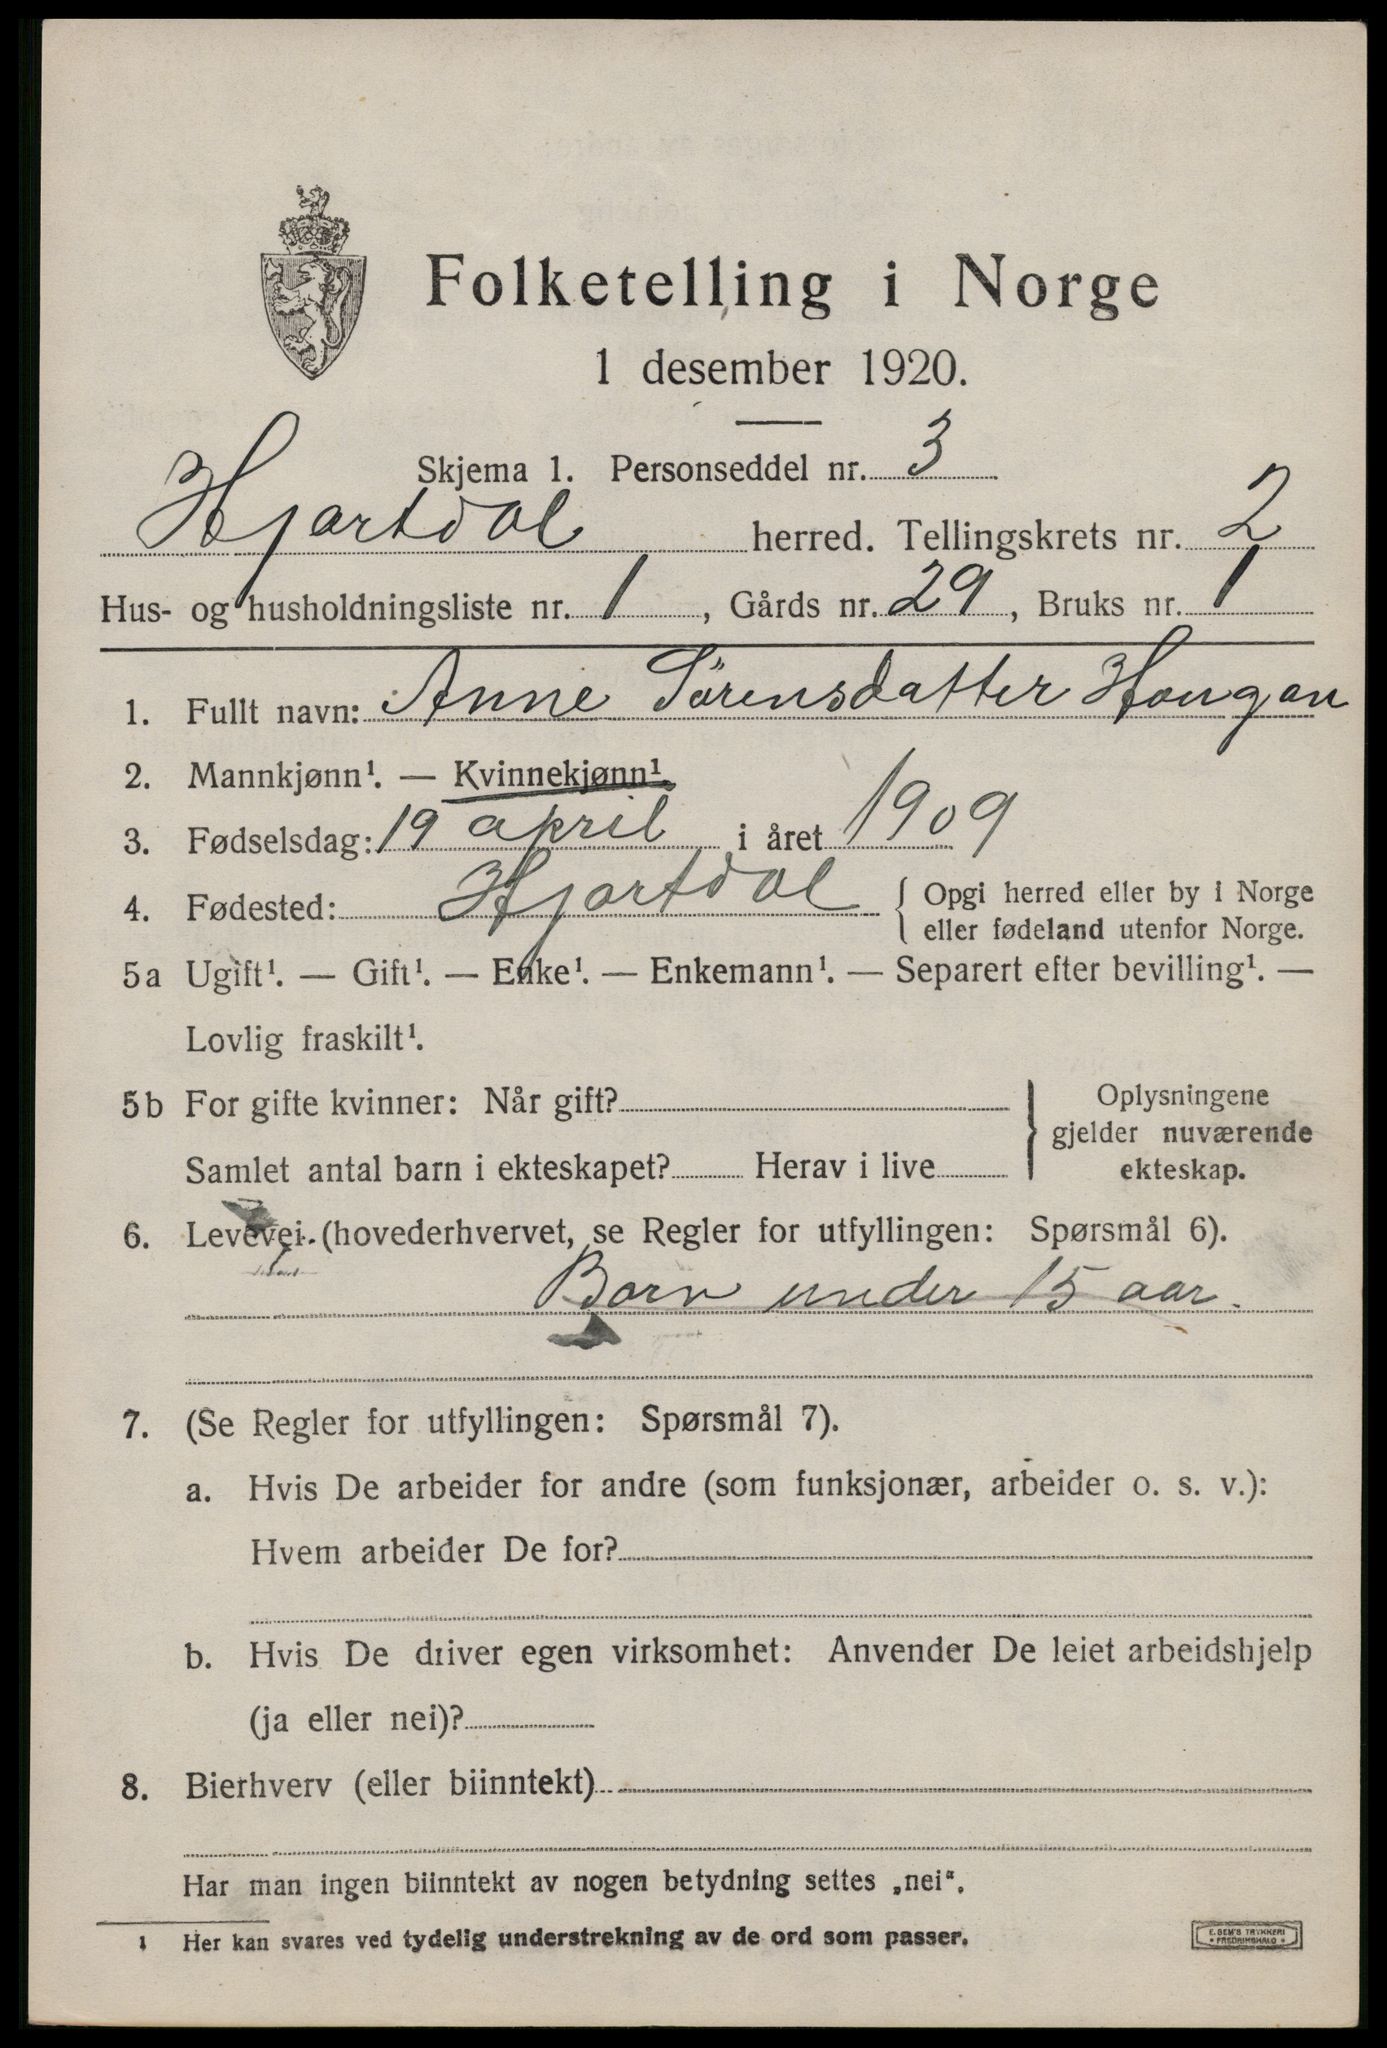 Folketelling i Norge
1 desember 1920.
Skjema 1. Personseddel nr. 3
Hjartdal herred. Tellingskrets nr. 2
Hus- og husholdningsliste nr. 1, Gårds nr. 29, Bruks nr. 1
1. Fullt navn: Anne Sörensdatter Haugan
2. Mannkjønn¹. — Kvinnekjønn¹.
3. Fødselsdag: 19 april i året 1909
4. Fødested: Hjartdal { Opgi herred eller by i Norge
eller fødeland utenfor Norge.
5a Ugift¹. — Gift¹. — Enke¹. — Enkemann¹. — Separert efter bevilling¹. —
Lovlig fraskilt¹.
5b For gifte kvinner: Når gift?
Samlet antal barn i ekteskapet? Herav i live
} Oplysningene
gjelder nuværende
ekteskap.
6. Levevei (hovederhvervet, se Regler for utfyllingen: Spørsmål 6).
Barn under 15 aar.
7. (Se Regler for utfyllingen: Spørsmål 7).
a. Hvis De arbeider for andre (som funksjonær, arbeider o. s. v.):
Hvem arbeider De for?
b. Hvis De driver egen virksomhet: Anvender De leiet arbeidshjelp
(ja eller nei)?
8. Bierhverv (eller biinntekt)
Har man ingen biinntekt av nogen betydning settes „nei“.
1 Her kan svares ved tydelig understrekning av de ord som passer.
E. SEM'S TRYKKERI
• FREDRIKSHALD •